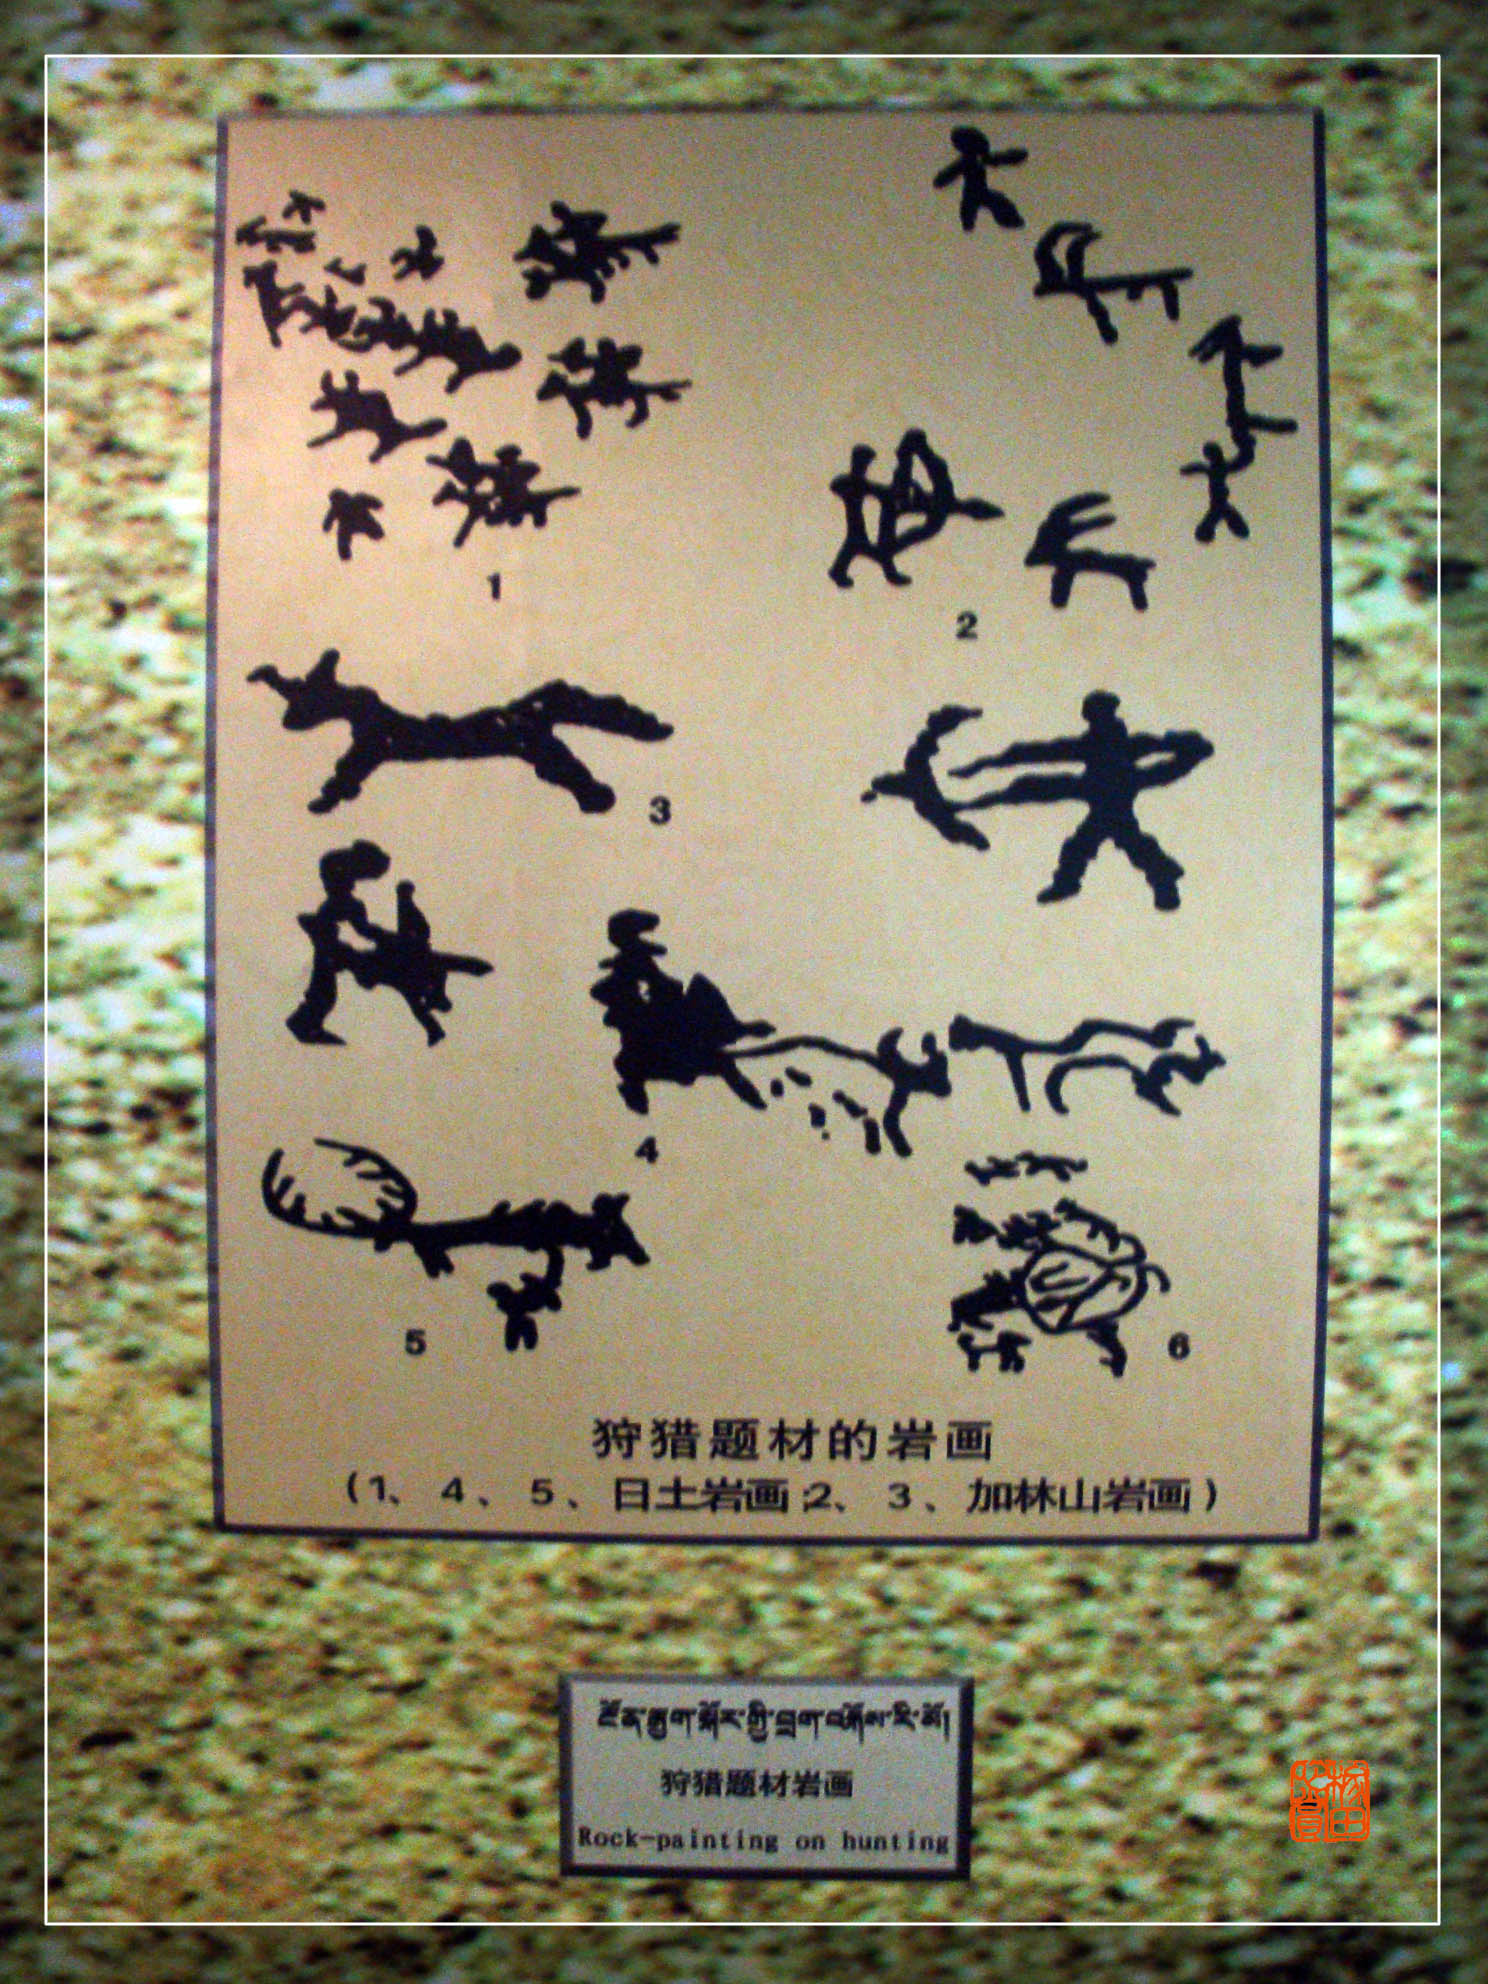 1
2
3
4
5
6
狩猎题材的岩画
(1、4、5、日土岩画;2、3、加林山岩画)
狩猎题材岩画
Rock-painting on hunting